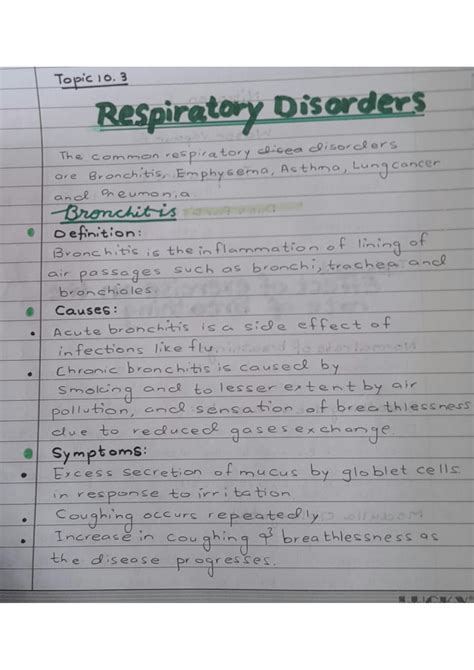 Topic 10.3
Respiratory Disorders
The common respiratory disea disorders
are Bronchitis, Emphysema, Asthma, Lung cancer
and Pneumonia.
Bronchitis
Definition:
Bronchitis is the inflammation of lining of
air passages such as bronchi, trachea and
bronchioles.
Causes:
Acute bronchitis is a side effect of
infections like flu.
Chronic bronchitis is caused by
smoking and to lesser extent by air
pollution, and sensation of breathlessness
due to reduced gases exchange.
Symptoms:
Excess secretion of mucus by globlet cells
in response to irritation
Coughing occurs repeatedly
Increase in coughing & breathlessness as
the disease progresses.